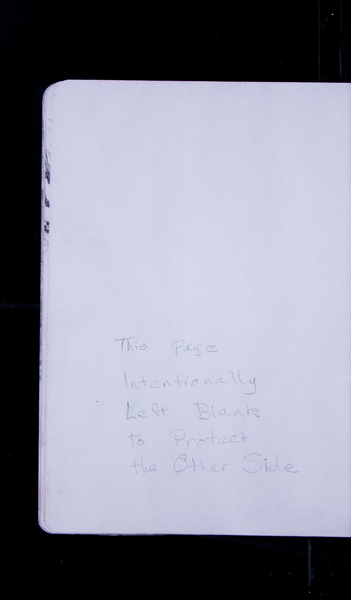 This Page
Intentionally
Left Blank
to Protect
the Other Side